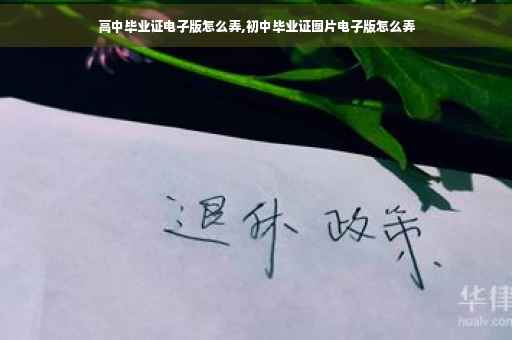 高中毕业证电子版怎么弄,初中毕业证图片电子版怎么弄
退休 政策
华律
hualv.com